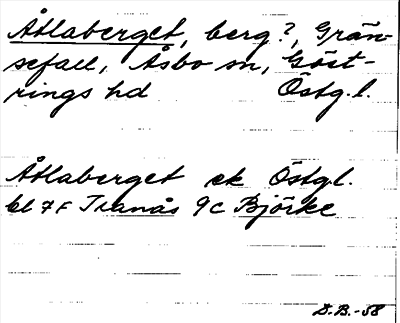 Åtlaberget, berg?, Grän-
sefall, Åsbo sn, Göst-
rings hd Östg.l.
Åtlaberget ek Östgl.
bl 7F Tranås 9c Björke
D.B.-58